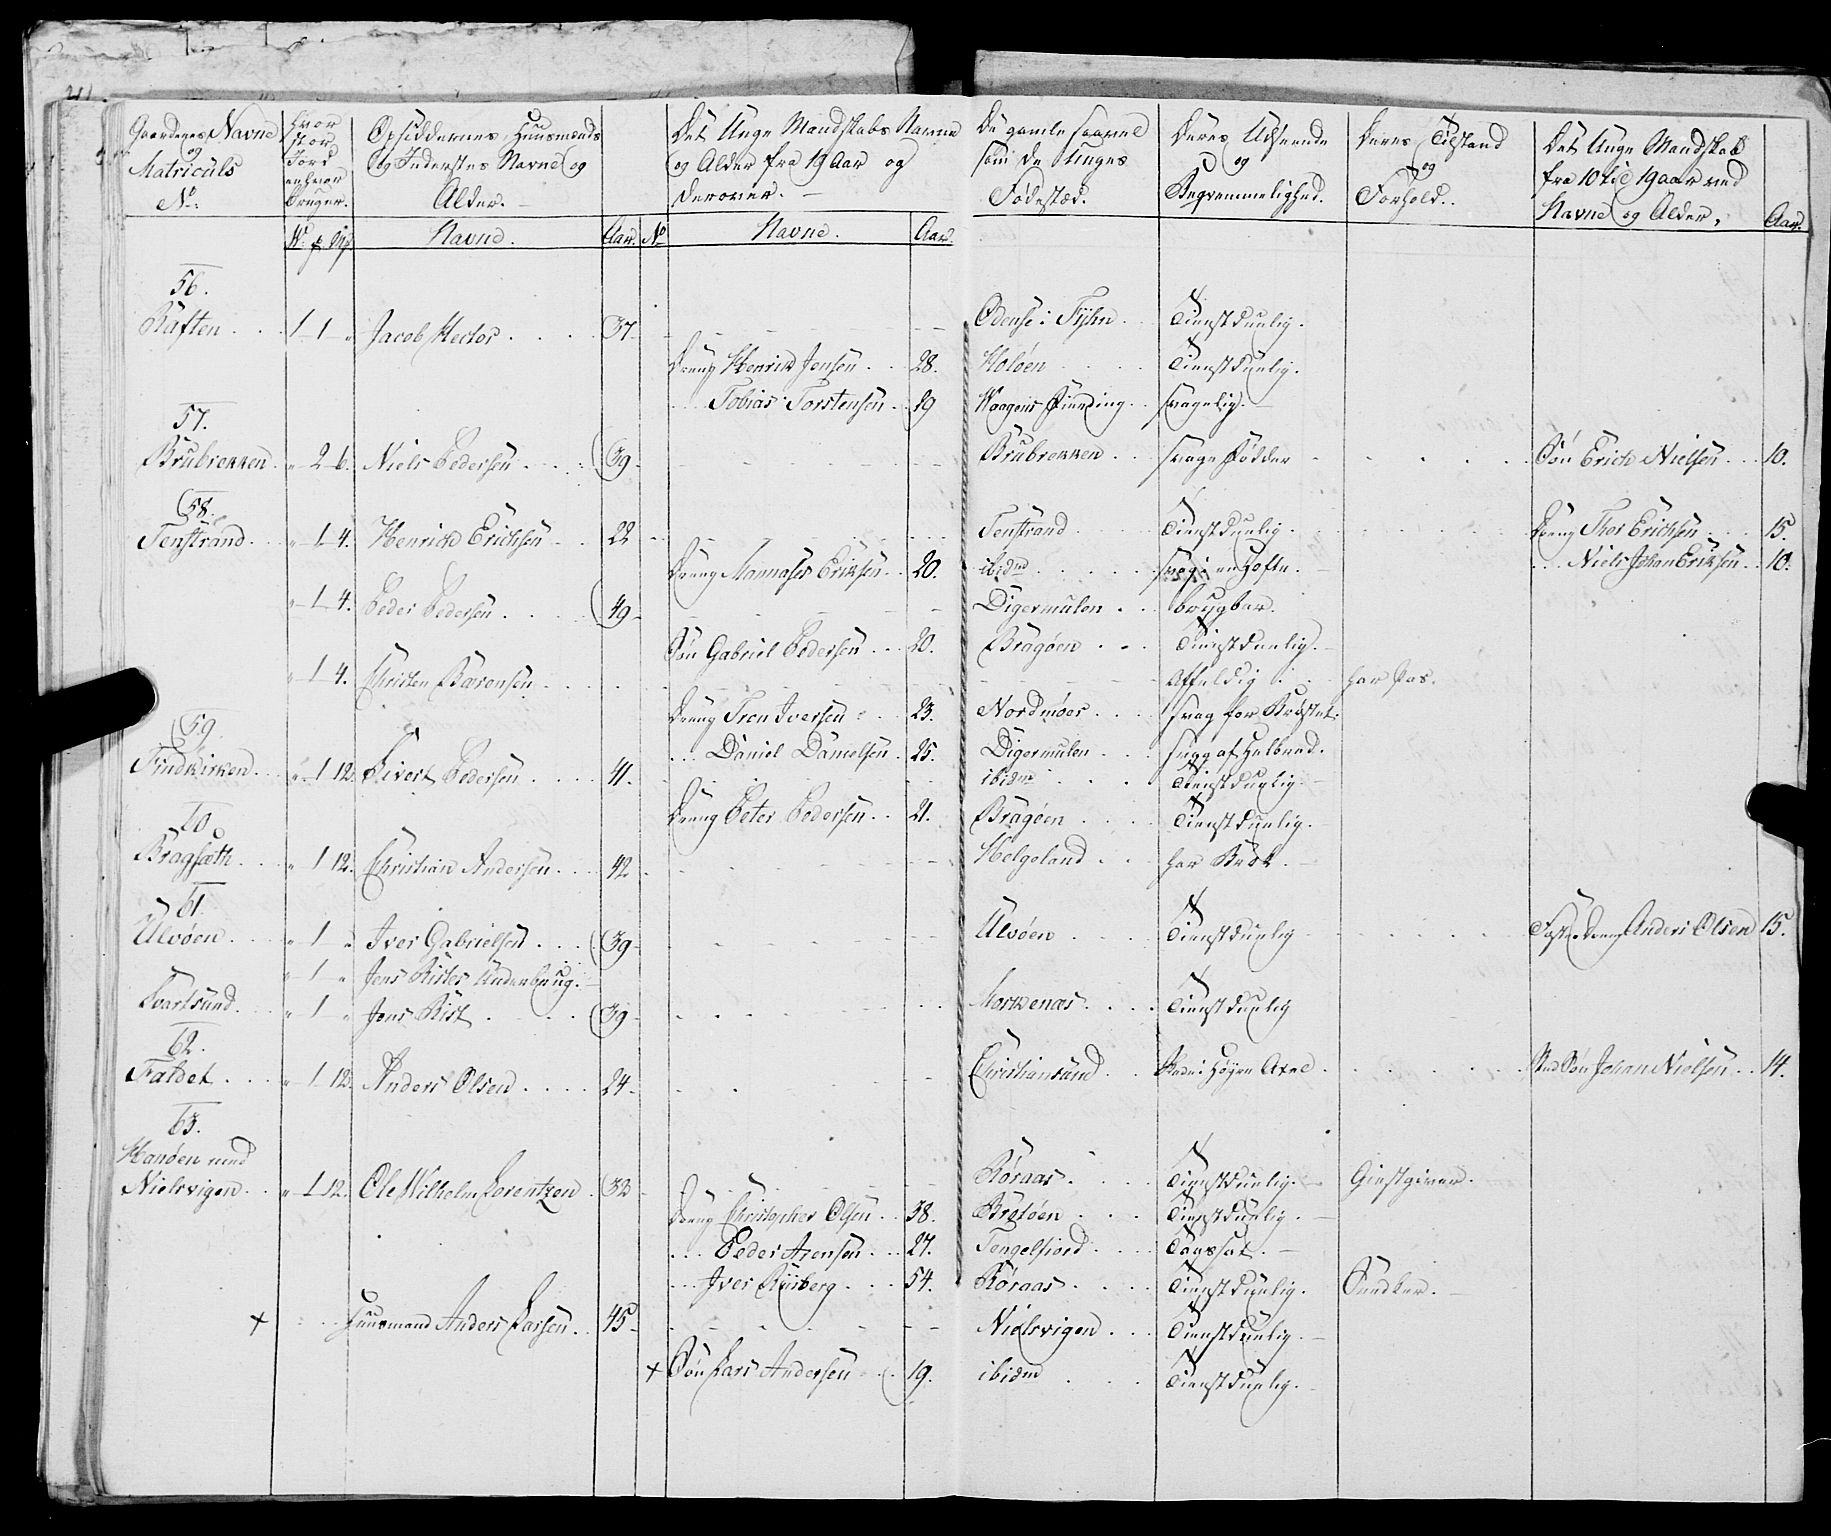 Gaardenes Navne og Matriculs No:
Hvor stor Jord enhver bruger.
Opsiddernes, Huusmænds og Inderstes Navne og Alder.
Det Unge Mandskabs Navne og Alder fra 19 Aar og derover.
De gamle saavel som de Unges Fødestæd.
Deres Udseende og Beqvemmelighed.
Deres Tilstand og Forhold.
Det Unge Mandskab fra 10 til 19 aar med Navne og Alder,
Aar.
Navne. Aar. No Navne. Aar.
56.
Raften 1 1 " Jacob Hector 37 Odense i Fyhn Tienstdygtig.
Dreng Henrik Jensen 28. Holøen Tienstdygtig.
Tobias Torstensen 19 Waagens Fierding svagelig.
57.
Brubrekken " 2 6. Niels Pedersen 39 Brubrekken svage Fødder Søn Erich Nielsen 10.
58.
Tenstrand " 1 4. Henrich Erichsen 22 Tenstrand Tienstdygtig. Dreng Thor Erichsen 15.
Dreng Mannases Eriksen 20. ibidm svag i en Hofte. Niels Johan Eriksen 10.
" 1 4. Peder Pedersen 49 Digermulen brugbar.
Søn Gabriel Pedersen 20. Bragøen Tienstdygtig.
" 1 4. Christen Barensen Affældig har Pas.
Dreng Iver Iversen 23. Nordmøer svag for Brystet.
59.
Daniel Danielsen 25. Digermulen svag af Helbred.
Findkirken " 1 12. Sivert Pedersen 41. ibidm Tienstdygtig.
Dreng Peter Pedersen 21. Bragøen Tienstdygtig.
60
Bragsæth " 1 12. Christian Andersen 42 Helgeland har Brok.
61.
Ulvøen " 1 " Iver Gabrielsen 39 Ulvøen Tienstdygtig Foster Dreng Anders Olsen 15.
" 1 " Jens Rists Underbrug.
Svartsund " 1 " Jens Rist 39 Morkenæs Tienstdygtig
62.
Faldet " 1 12. Anders Olsen 24 Christiansund Skade i høyre Axel Sted Søn Johan Nielsen 14.
63.
Hanøen med
Nielsvigen " 1 12. Ole Wilhelm Lorentzen 32 Røraas Tienstdygtig. Giestgiver.
Dreng Christopher Olsen 38. Bratøen Tienstdygtig.
Peder Arensen 27. Tengelfiord Taassat.
Iver Rüsberg 54. Røraas Tienstdygtig. Snedker.
+ Huusmand Anders Larsen 45 Nielsvigen Tienstdygtig.
+ Søn Lars Andersen 19. ibidm Tienstdygtig.